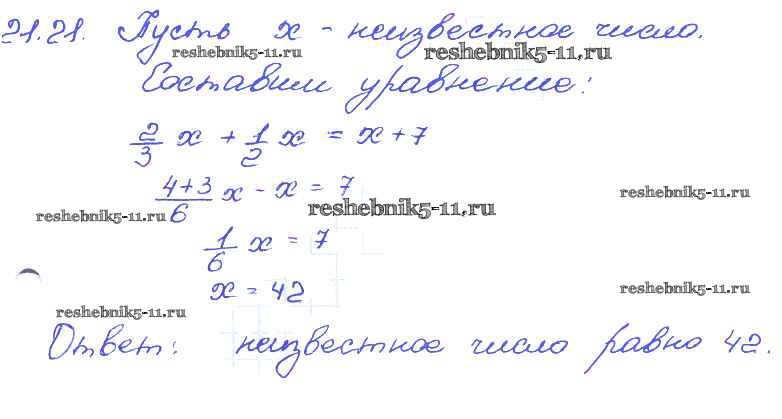 21.21. Пусть x - неизвестное число.
reshebnik5-11.ru reshebnik5-11.ru
Составим уравнение:
2/3 x + 1/2 x = x + 7
4+3/6 x - x = 7
reshebnik5-11.ru
reshebnik5-11.ru reshebnik5-11.ru
1/6 x = 7
x = 42
reshebnik5-11.ru
reshebnik5-11.ru
Ответ: неизвестное число равно 42.